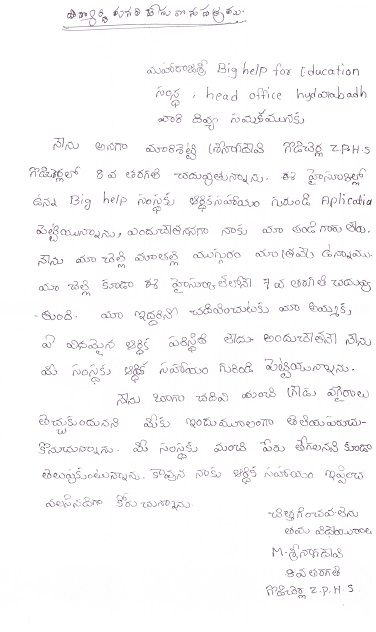 మహారాజశ్రీ Big help for Education
సంస్థ, head office hyderabadh
వారి దివ్య సముఖమునకు
నేను అనగా మారిశెట్టి శ్రీనాగదేవి గొడిచెర్ల Z.P.H.S
గొడిచెర్లలో 8వ తరగతి చదువుతున్నాను. ఈ హైస్కూల్లో
ఉన్న Big help సంస్థకు ఆర్థికసహాయం గురించి Aplicatio
పెట్టియున్నాను, ఎందుచేతననగా నాకు మా తండ్రిగారు లేరు.
నేను మా చెల్లి మాతల్లి ముగ్గురం మాత్రమే ఉన్నాము.
మా చెల్లి కూడా ఈ హైస్కూలులోనే 7వ తరగతి చదువు
-తుంది. మా ఇద్దరిని చదివించుటకు మా అమ్మకు
ఏ విధమైన ఆర్థిక పరిస్థితి లేదు. అందుచేతనే నేను
మీ సంస్థకు ఆర్థిక సహాయం గురించి పెట్టియున్నాను.
నేను బాగా చదివి మంచి గ్రేడు
తెచ్చుకుందునని మీకు ఇందుమూలంగా తెలియపరచు-
కొనుచున్నాను. మీ సంస్థకు మంచి పేరు తేగలనని కూడా
తెలుపుకుంటున్నాను. కావున నాకు ఆర్థిక సహాయం ఇప్పించ
వలసినదిగా కోరుచున్నాను.
చిత్తగించవలెను
తమ విధేయురాలు
M. శ్రీనాగదేవి
8వ తరగతి
గొడిచెర్ల Z.P.H.S